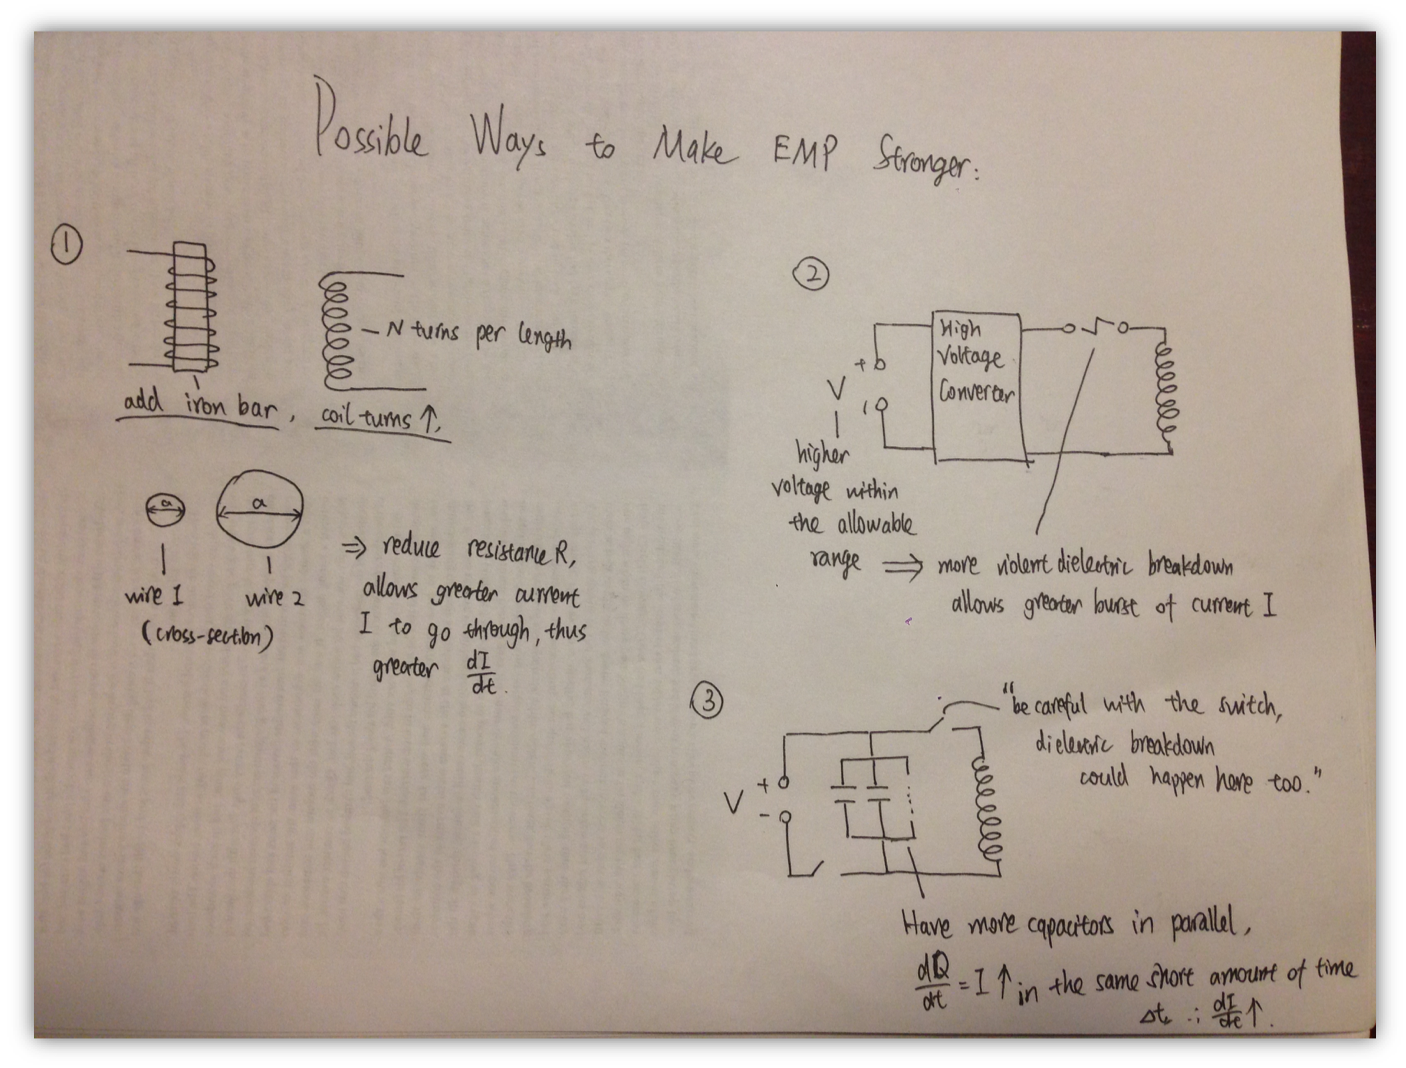 Possible Ways to Make EMP Stronger:
①
N turns per length
add iron bar, coil turns ↑,
a
a
wire 1
wire 2
(cross-section)
⇒ reduce resistance R,
allows greater current
I to go through, thus
greater dI/dt.
②
High
Voltage
Converter
+
V
higher
voltage within
the allowable
range ⇒ more violent dielectric breakdown
allows greater burst of current I
③
"be careful with the switch,
dielectric breakdown
could happen here too."
+
V
-
Have more capacitors in parallel,
dQ/dt = I ↑ in the same short amount of time
Δt, ∴ dI/dt ↑.